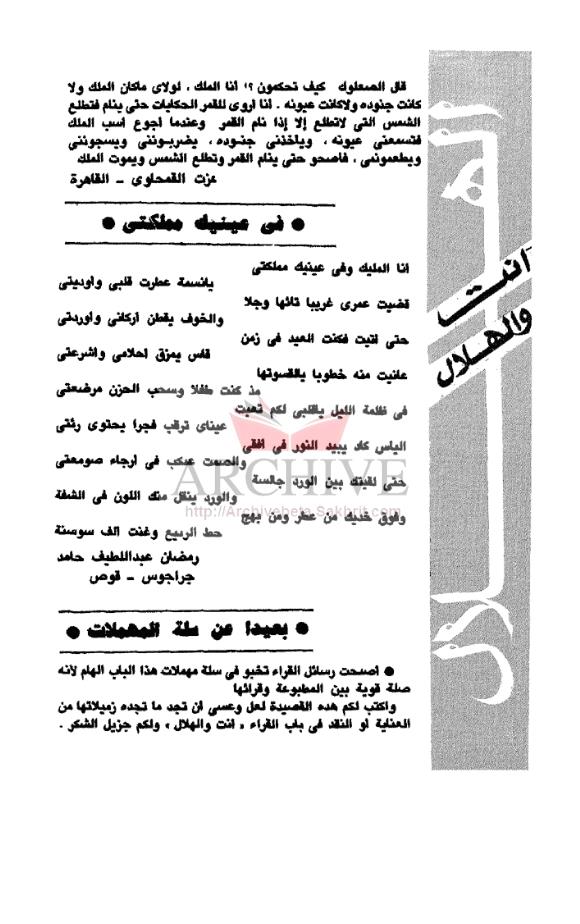 قال الصعلوك كيف تحكمون ؟! أنا الملك ، لولاى ماكان الملك ولا
كانت جنوده ولاكانت عيونه . أنا أروى للقمر الحكايات حتى ينام فتطلع
الشمس التى لاتطلع إلا إذا نام القمر وعندما أجوع أسب الملك
فتسمعنى عيونه ، وياخذنى جنوده ، يضربوننى ويسجوننى
ويطعموننى ، فاصحو حتى ينام القمر وتطلع الشمس ويموت الملك
عزت القمحاوى - القاهرة
● فى عينيك مملكتى ●
أنا المليك وفى عينيك مملكتى
يانسمة عطرت قلبى وأوديتى
قضيت عمرى غريبا تائها وجلا
والخوف يقطن أركانى وأوردتى
حتى أتيت فكنت العيد فى زمن
قاس يمزق أحلامى وأشرعتى
عانيت منه خطوبا ياقسوتها
مذ كنت طفلا وسحب الحزن مرضعتى
فى ظلمة الليل ياقلبى لكم تعبت
عيناى ترقب فجرا يحتوى رئتى
الياس كاد يبيد النور فى أفقى
والصمت عنكب فى أرجاء صومعتى
حتى لقيتك بين الورد جالسة
والورد ينقل منك اللون فى الشفة
وفوق خديك من عطر ومن بهج
حط الربيع وغنت ألف سوسنة
رمضان عبداللطيف حامد
جراجوس - قوص
● بعيدا عن سلة المهملات ●
● أصبحت رسائل القراء تخبو فى سلة مهملات هذا الباب الهام لأنه
صلة قوية بين المطبوعة وقرائها
واكتب لكم هذه القصيدة لعل وعسى أن تجد ما تجده زميلاتها من
العناية أو النقد فى باب القراء « أنت والهلال » ولكم جزيل الشكر .
الهلال
أنت
والهلال
ARCHIVE
http://Archivebeta.Sakhrit.com